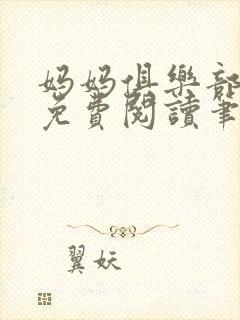 妈妈俱樂部
免費閱讀筆
翼妖